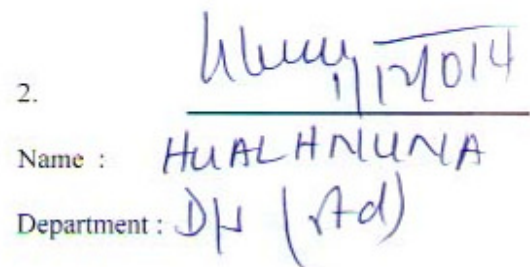 2.
1/12/014
Name : HUALHNUNA
Department : DN (Ad)